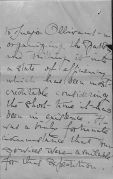 to Surgeon Ollivant in
organizing the Battn
and training it into
a state of efficiency
which has been most
creditable considering
the short time it has
been in existence. It
was a truly fortunate
circumstance that our
services were available
for this Expedition.